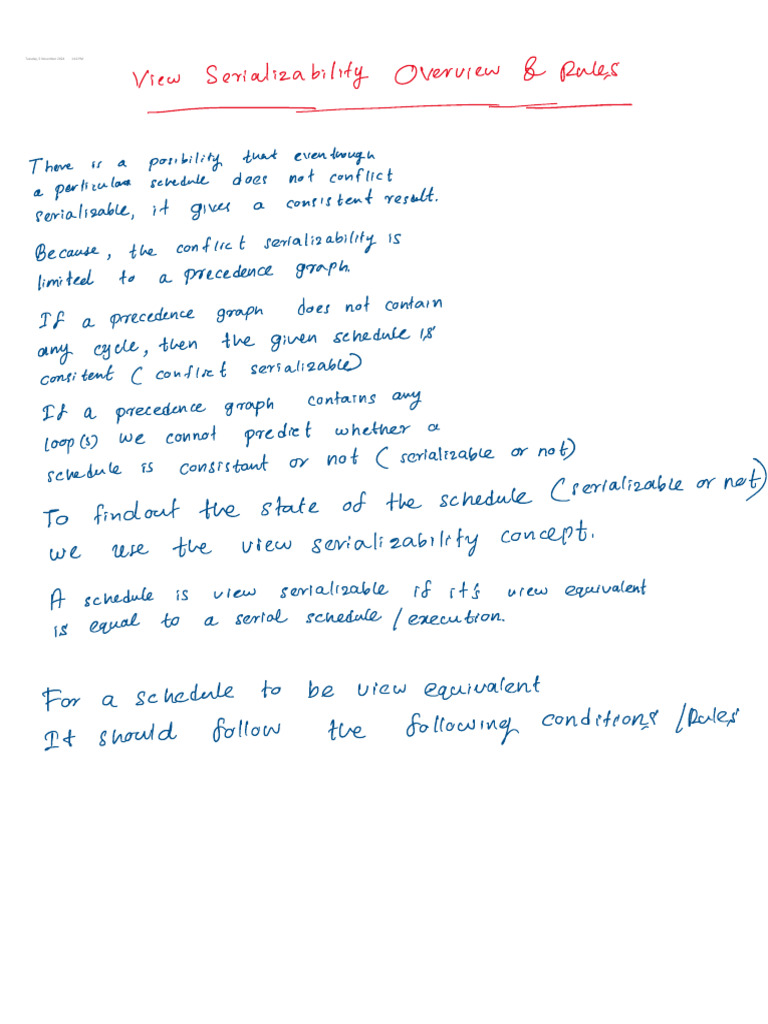 View Serializability Overview & Rules
There is a posibility that eventhough
a particular schedule does not conflict
serializable, it gives a consistent result.
Because, the conflict serializability is
limited to a precedence graph.
If a precedence graph does not contain
any cycle, then the given schedule is
consitent (conflict serializable)
If a precedence graph contains any
loop(s) we cannot predict whether a
schedule is consistant or not (serializable or not)
To findout the state of the schedule (serializable or not)
we use the view serializability concept.
A schedule is view serializable if it's view equivalent
is equal to a serial schedule / execution.
For a schedule to be view equivalent
It should follow the following conditions / Rules